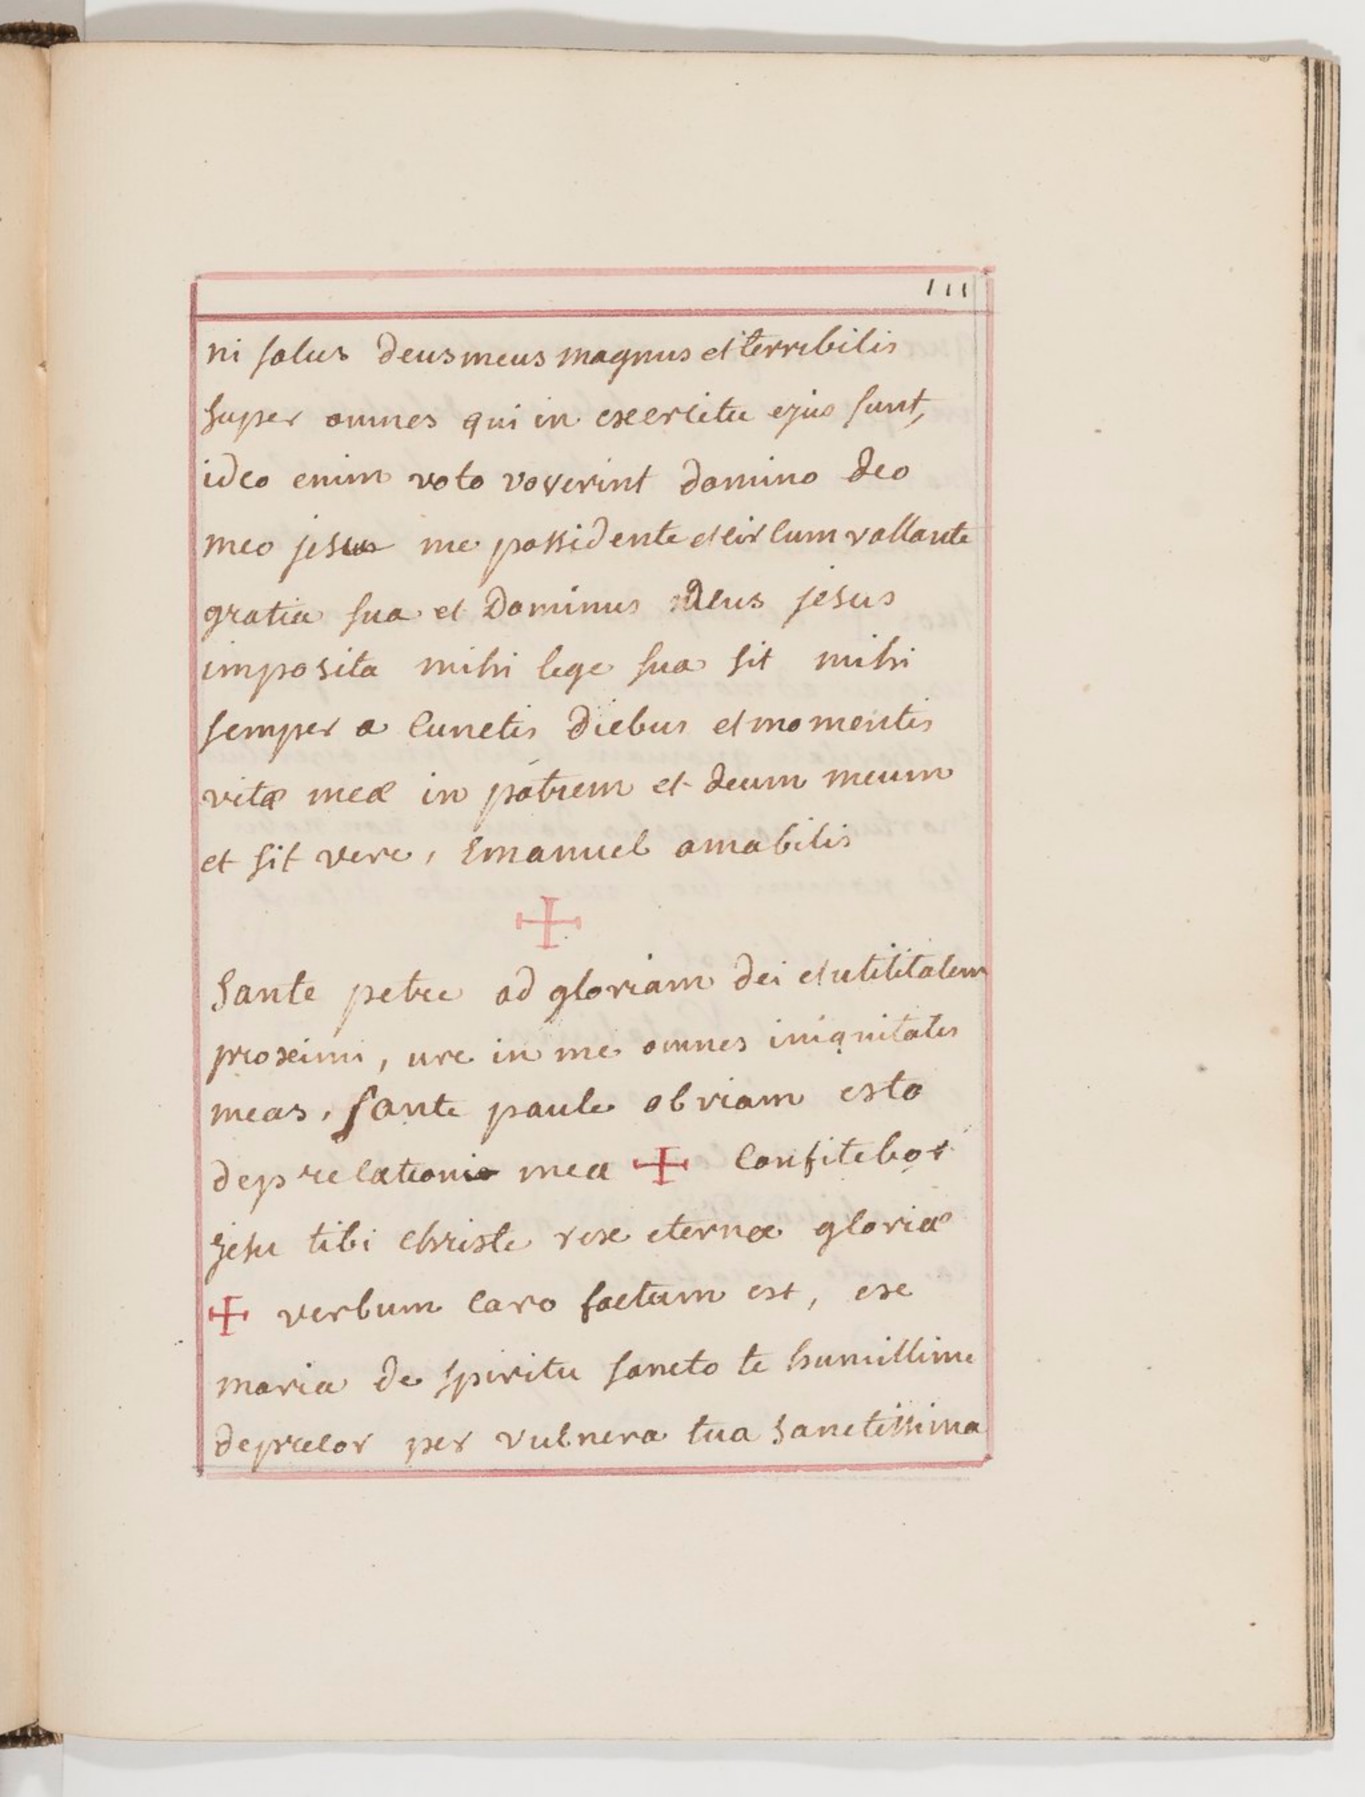 111
ni salus deus meus magnus et terribilis
super omnes qui in exercitu ejus sunt,
ideo enim voto voverint domino deo
meo jesus me possidente et circum vallante
gratia sua et Dominus Deus jesus
imposita mihi lege sua sit mihi
semper a cunctis diebus et momentis
vitæ meæ in patrem et deum meum
et sit vere, Emanuel amabilis
Sante petre ad gloriam dei et utilitatem
proximi, ure in me omnes iniquitates
meas, sante paule obviam esto
deprecationi mea ✠ Confitebor
jesu tibi christe rex eternæ gloriæ
✠ verbum caro factum est, ex
maria de spiritu sancto te humillime
deprecor per vulnera tua sanctissima